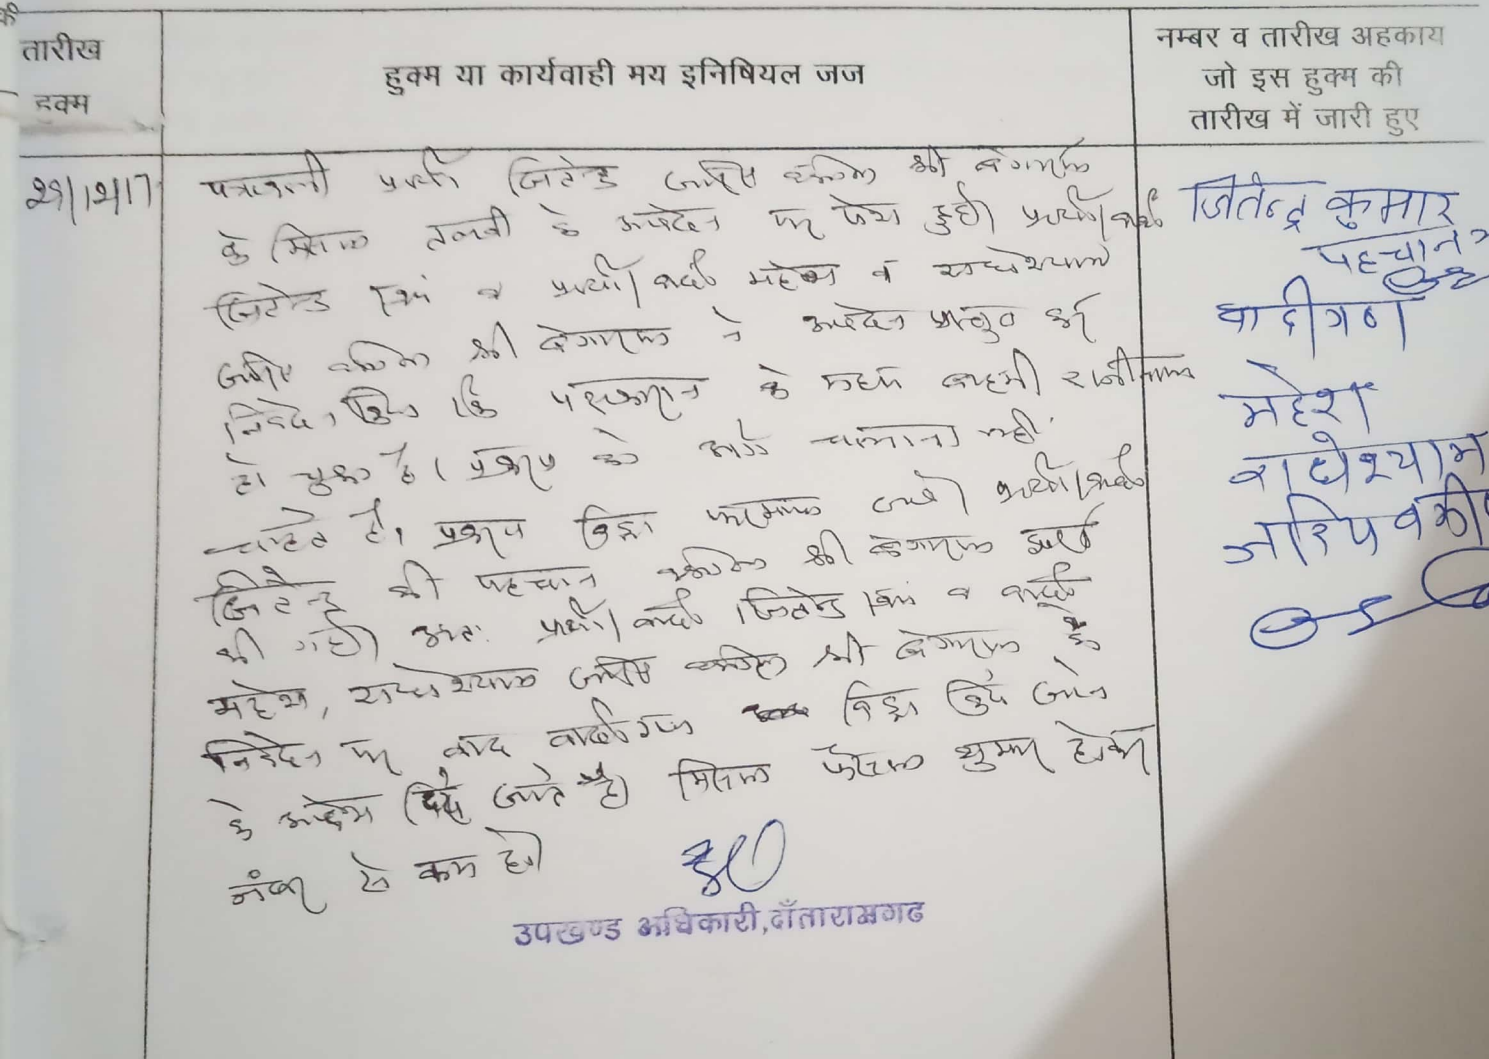 तारीख
हुक्म
हुक्म या कार्यवाही मय इनिषियल जज
नम्बर व तारीख अहकाय
जो इस हुक्म की
तारीख में जारी हुए
पत्रावली प्रार्थी जितेन्द्र जरिये वकील श्री
के मिसल तलबी के आवेदन पर पेश हुई। प्रार्थी/वादी
जितेन्द्र स्वयं व प्रार्थी/वादी महेश व राधेश्याम
जरिये वकील श्री ने आवेदन प्रस्तुत कर
निवेदन किया कि पक्षकारान के मध्य बाहमी राजीनामा
हो चुका है। प्रकरण को आगे चलाना नहीं
चाहते है। प्रकरण विड्रा फरमाया जावे। प्रार्थी/वादी
जितेन्द्र की पहचान वकील श्री द्वारा
की गई। अतः प्रार्थी/वादी जितेन्द्र स्वयं व वादी
महेश, राधेश्याम जरिये वकील श्री के
निवेदन पर वाद वादीगण विड्रा किये जाने
के आदेश दिये जाते है। मिसल फैसल शुमार होकर
नंबर से कम हो।
उपखण्ड अधिकारी, दाँतारामगढ
जितेन्द्र कुमार
पहचान
वादीगण
महेश
राधेश्याम
जरिये वकील